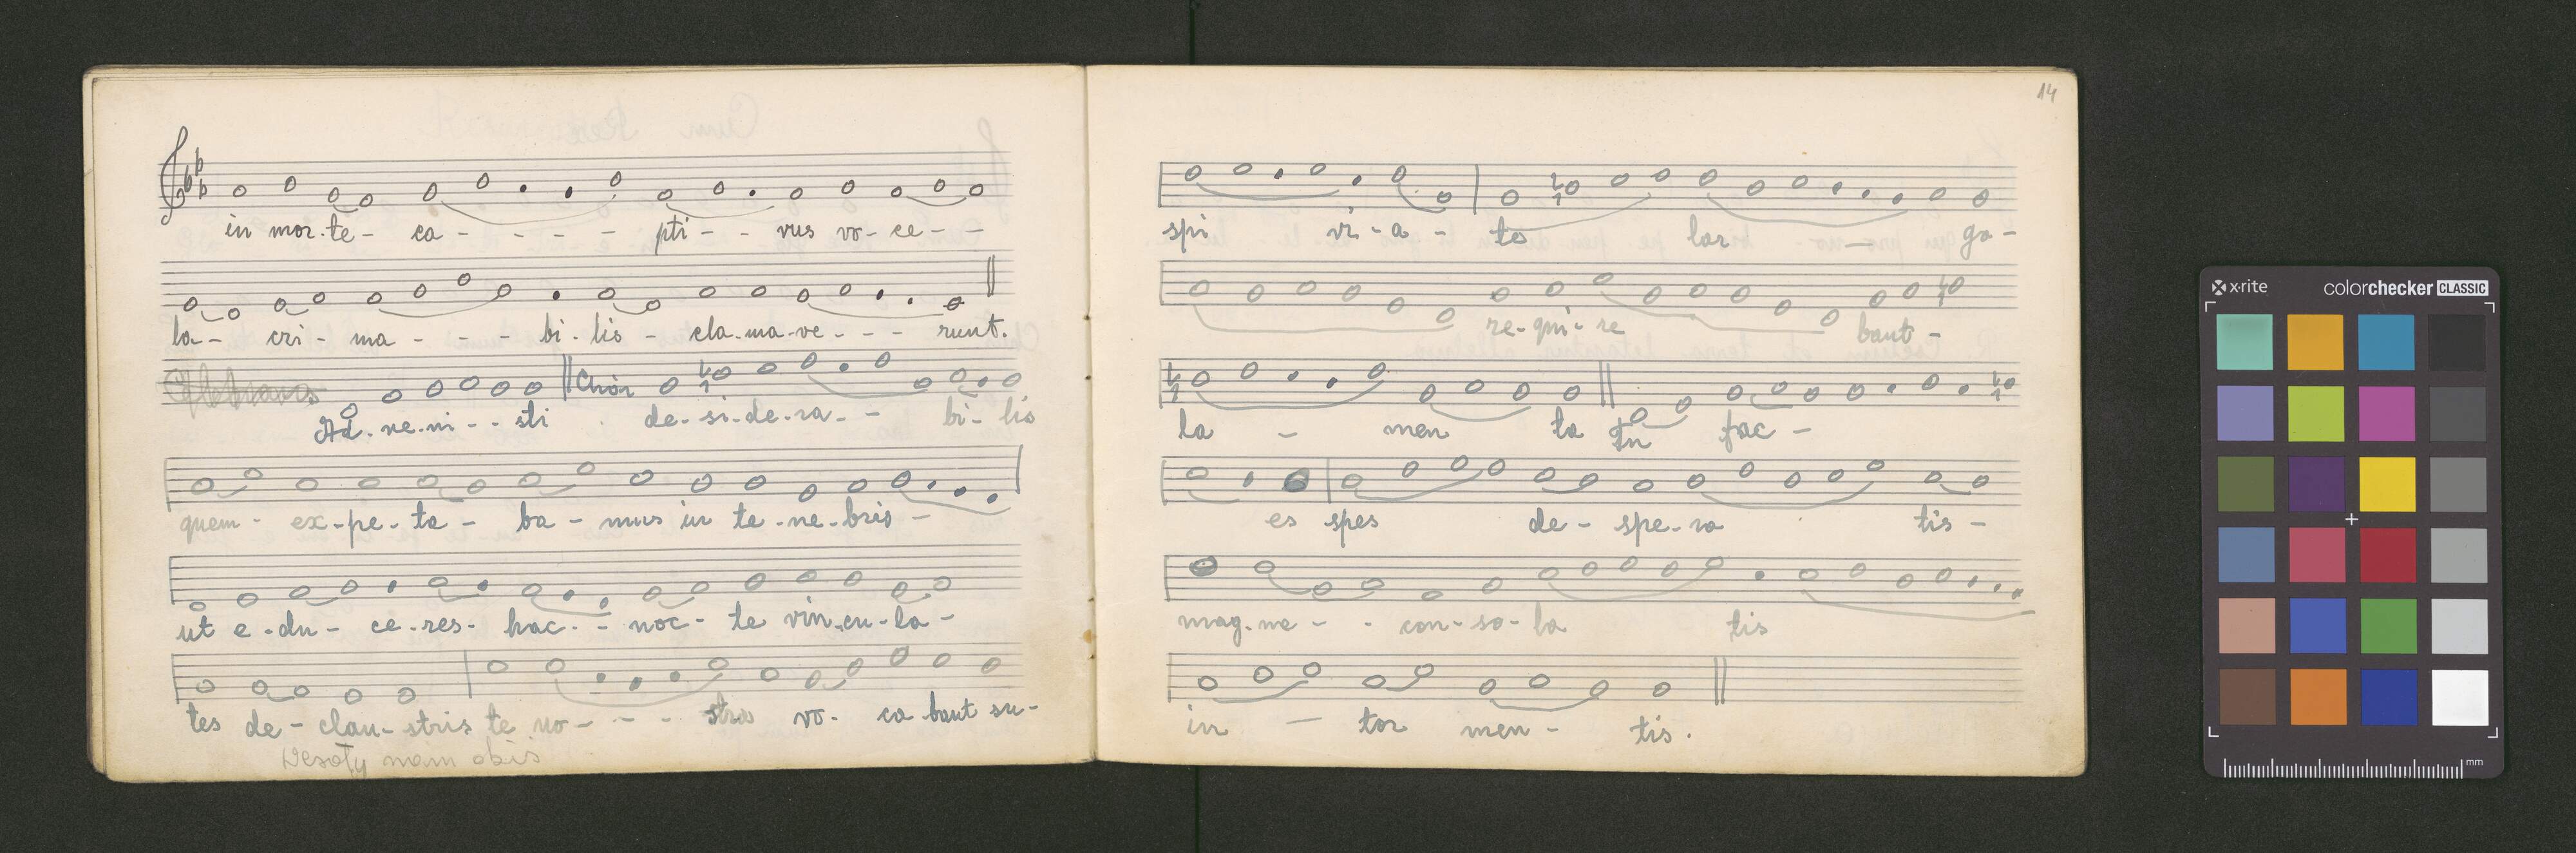 in mor-te- ca - - - - pti - - vus vo-ce - -
la - - cri - ma - - - bi-lis - cla-ma-ve - - - runt.
Chór
Ad-ve-ni - - sti de-si-de-ra - - bi-lis
quem - ex-pe-ta - ba - mus in te-ne-bris -
ut e-du - ce-res - hac - - noc - te vin-cu-la -
tes de - clau-stris te no - - - stra vo - ca bant su -
Wesoły nam
14
spi vi - a - ta lar - ga -
re-qui-re bant -
la - men ta tu fac -
es spes de - spe-ra tis -
mag-ne - - con-so-la tis
in - tor men - tis.
x-rite colorchecker CLASSIC
mm